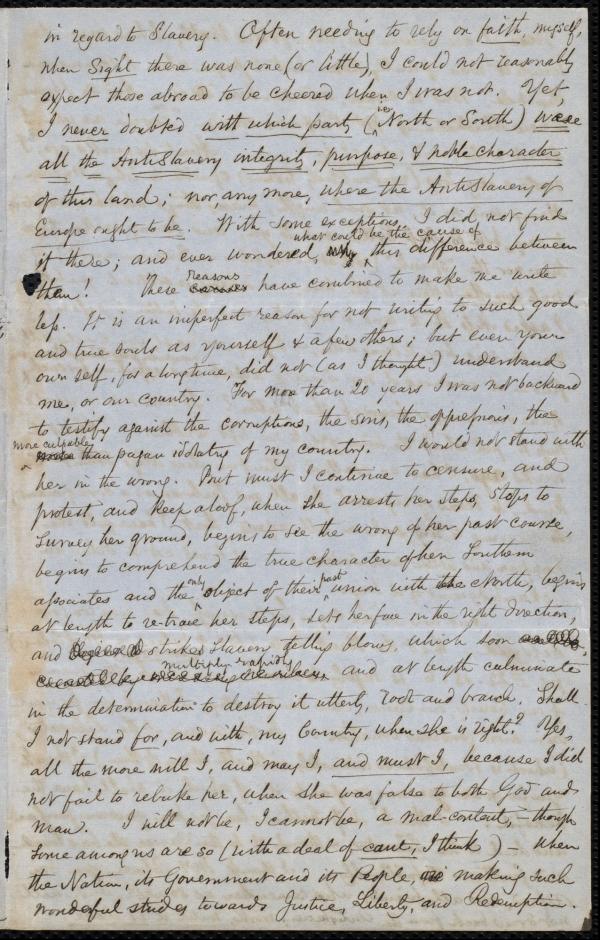 in regard to Slavery. Often needing to rely on faith, myself,
when Sight there was none (or little), I could not reasonably
expect those abroad to be cheered when I was not. Yet,
I never doubted with which party (North or South) were
all the AntiSlavery integrity, purpose, & noble character
of this land; nor, any more, where the AntiSlavery of
Europe ought to be. With some exceptions, I did not find
it there; and ever wondered, what could be the cause of this difference between
them! These reasons have combined to make me write
less. It is an imperfect reason for not writing to such good
and true souls as yourself & a few others; but even your
own self, for a long time, did not (as I thought) understand
me, or our country. For more than 20 years I was not backward
to testify against the corruptions, the sins, the oppressions, the
more culpable than pagan idolatry of my country. I would not stand with
her in the wrong. But must I continue to censure, and
protest, and keep aloof, when she arrests her steps, stops to
survey her ground, begins to see the wrong of her past course,
begins to comprehend the true character of her Southern
associates and the only object of their past union with the North, begins
at length to re-trace her steps, sets her face in the right direction,
and strikes Slavery telling blows, which soon
multiply rapidly and at length culminate
in the determination to destroy it utterly, root and branch. Shall
I not stand for, and with, my Country, when she is right? Yes,
all the more will I, and may I, and must I, because I did
not fail to rebuke her, when she was false to both God and
man. I will not be, I cannot be, a mal-content, – though
some among us are so (with a deal of cant, I think) – when
the Nation, its Government and its People, are making such
wonderful strides towards Justice, Liberty, and Redemption.